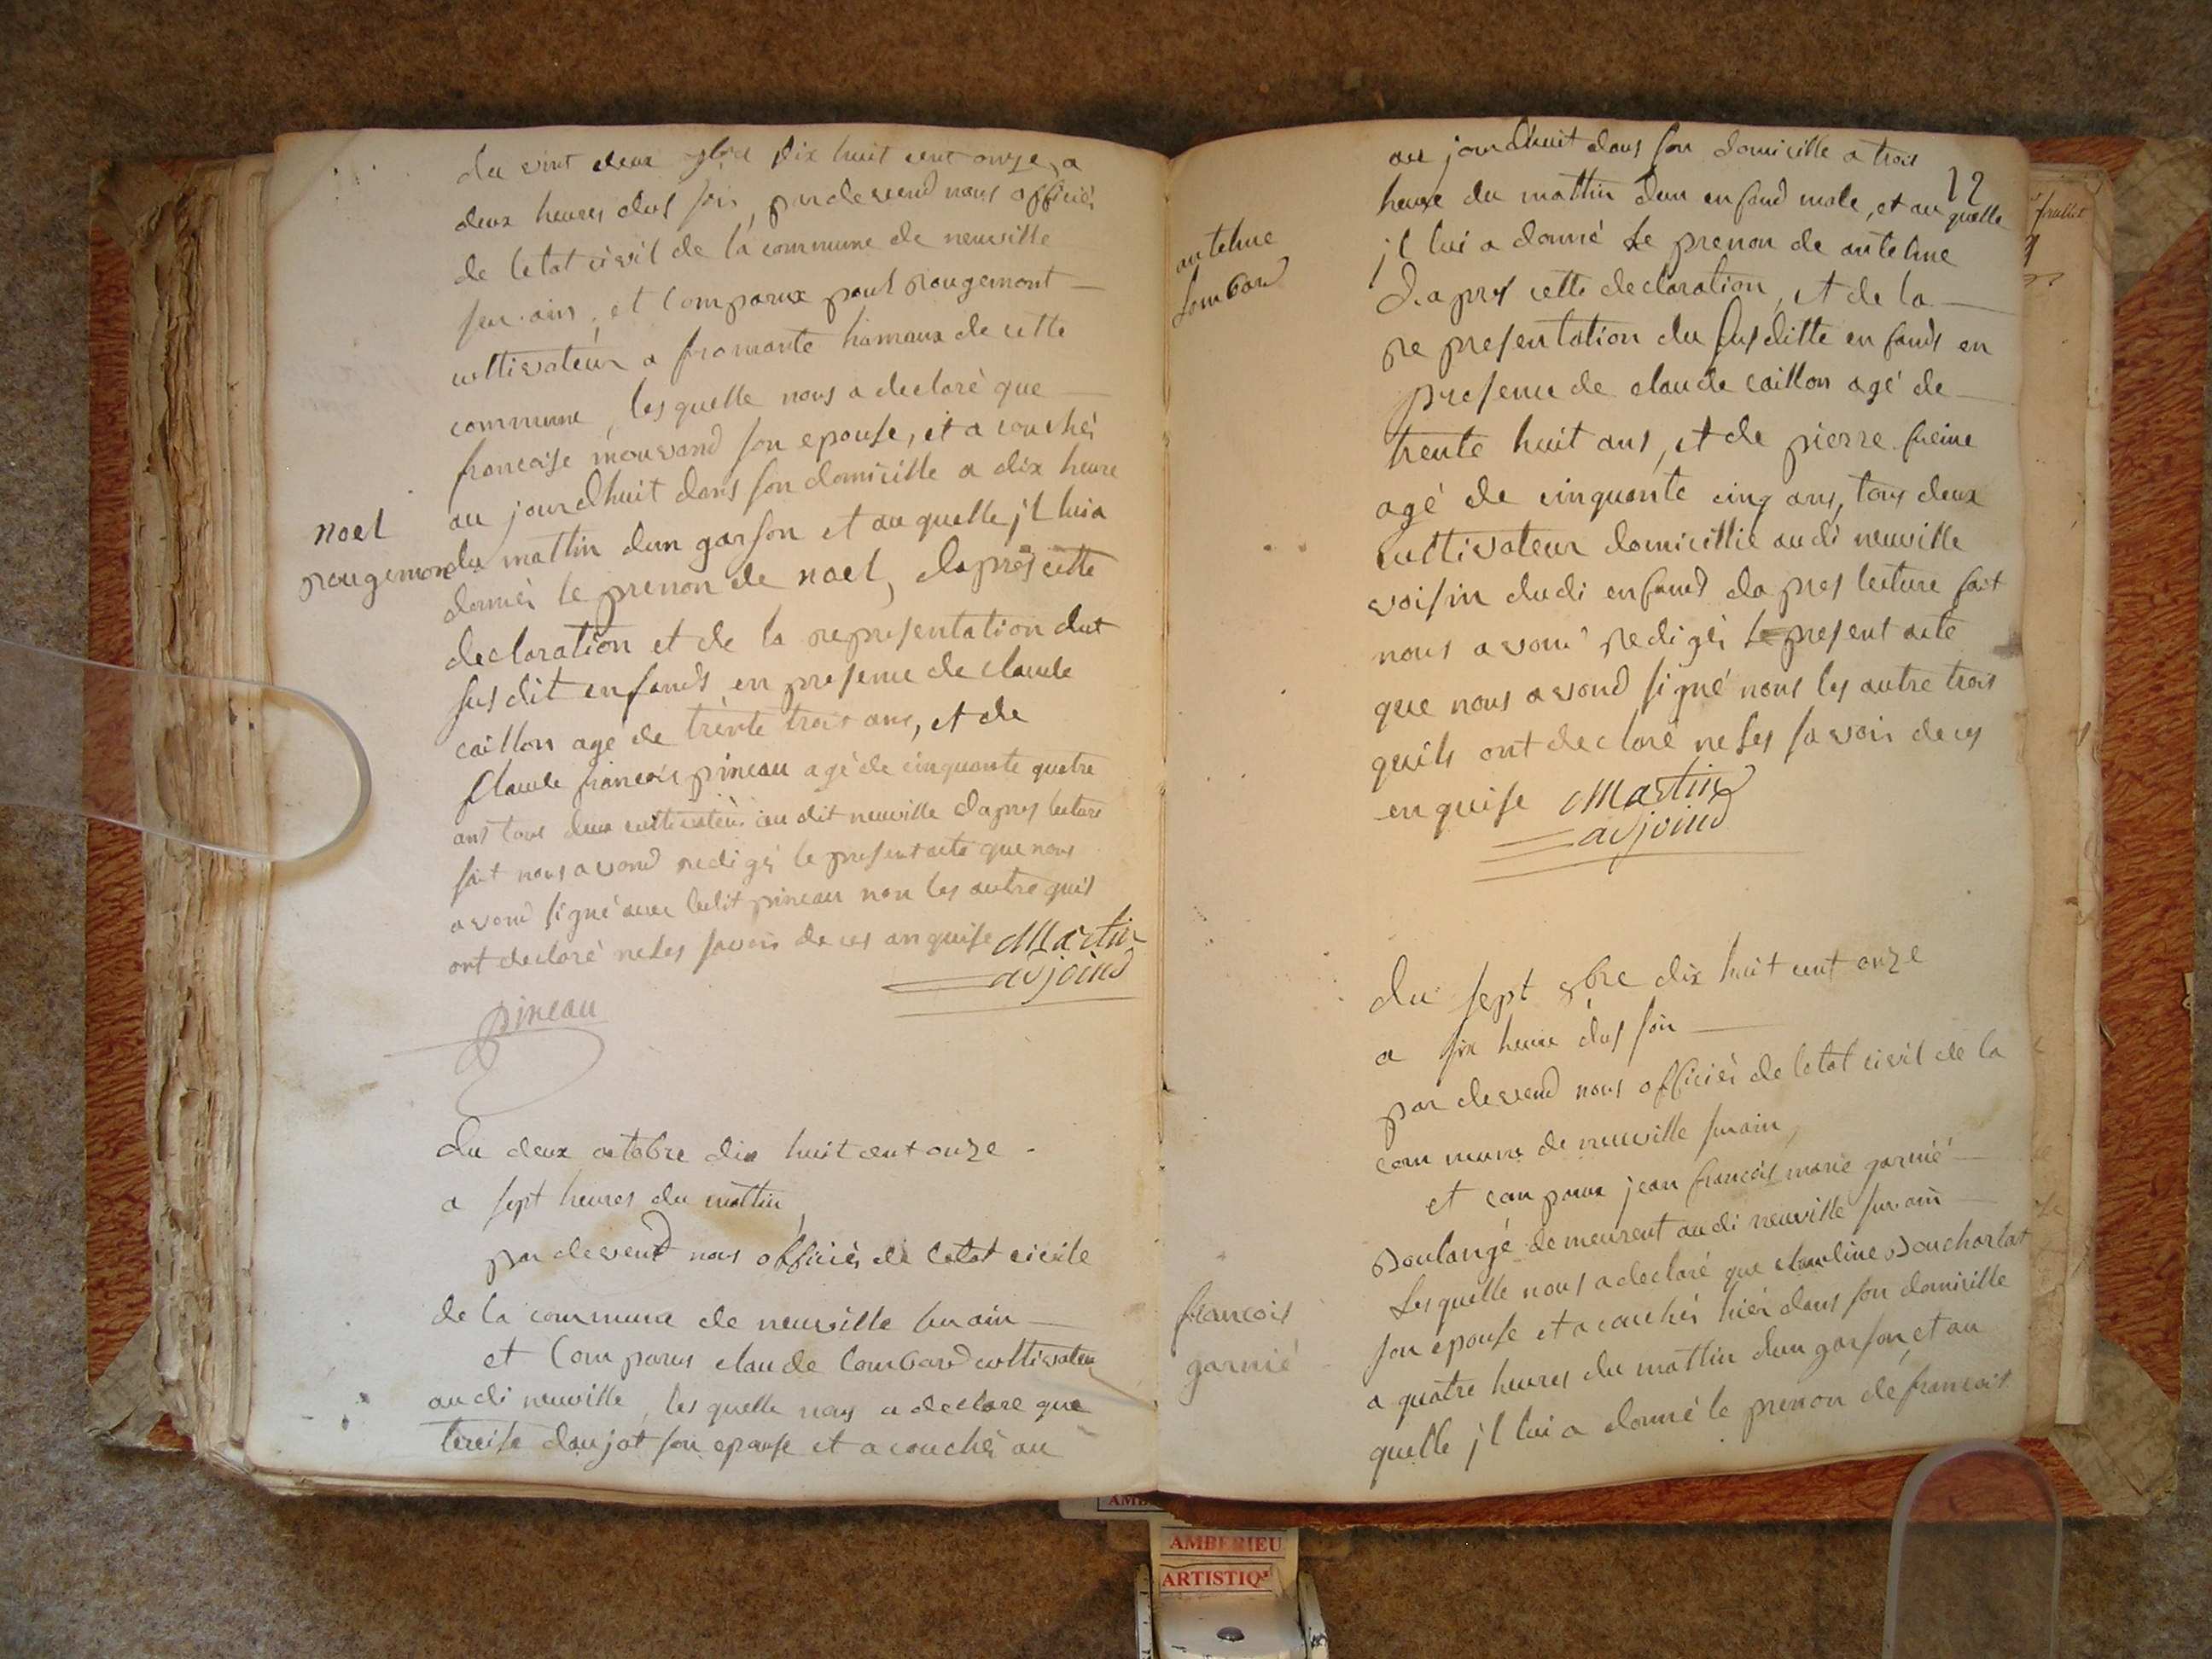 du vint deux 7bre dix huit cent onze, a
deux heures dus soir, pardevend nous officiér
de letat civil de la commune de neuville
sur. ain, et Comparux paul rougemont —
cultivateur a fromante hamaux de cette
commune, lesquelle nous a declaré que —
francoise mouvand son epouse, et a couchér
au jourdhuit dans son domicille a dix heure
noel
rougemon
du mattin dun garson et au quelle jl lui a
donnér le prenon de noel, daprés cette
declaration et de la representation dut
sus dit enfands en presence de claude
caillon agé de trente trois ans, et de
Claude francois pineau agé de cinquante quatre
ans tous deux cultivateur au dit neuville dapres lecture
fait nous avond redigér le present acte que nous
avond signé avec ledit pineau non les autre quil
ont declaré neles savoir de ces anquise Martin
adjoind
pineau
du deux octobre dix huit cent onze.
a sept heures du mattin
par devend nous officiér de letat civile
de la commune de neuville surain —
et Comparus claude Lombard cultivateur
audi neuville, les quelle nous a declare que
tereise daujat son epouse et a couchér au
12
au jourdhuit dans son domicille a trois
heure du mattin dun enfand male, et au quelle
jl lui a donné Le prenon de antelme
antelme
Lombard
Dapres cette declaration, et de la —
representation du susditte enfands en
presence de claude caillon agé de —
trente huit ans, et de pierre freine
agé de cinquante cinq ans, tous deux
cultivateur domicillié audi neuville
voisin dudi enfands dapres lecture fait
nous avons redigér le present acte
que nous avond signé nous les autre trois
quils ont declaré neles savoir de ces
enquise Martin
adjoind
du sept 8bre dix huit cent onze
a six heure dus soir —
par devend nous officiér de letat civil de la
commune de neuville surain,
et comparux jean francois marie garnié —
Boulangé demeurent audi neuville sur.ain —
Lesquelle nous a declaré que claudine Bouchorlat
francois
garnié
son epouse et a couchér hiér dans son domicille
a quatre heures du mattin dun garson, et au
quelle jl lui a donné le prenon de francois
feuillet
AMBERIEU
ARTISTIQ